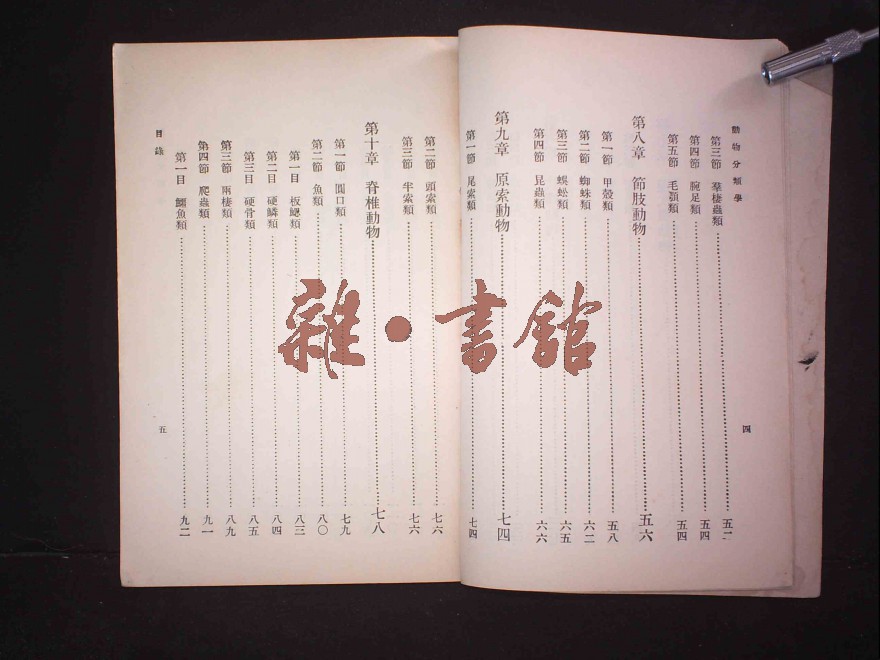 動物分類學
第三節 羣棲蟲類 五二
第四節 腕足類 五四
第五節 毛顎類 五四
第八章 節肢動物 五六
第一節 甲殼類 五八
第二節 蜘蛛類 六二
第三節 蜈蚣類 六五
第四節 昆蟲類 六六
第九章 原索動物 七四
第一節 尾索類 七四
四
第二節 頭索類 七六
第三節 半索類 七六
第十章 脊椎動物 七八
第一節 圓口類 七九
第二節 魚類 八〇
第一目 板鰓類 八三
第二目 硬鱗類 八四
第三目 硬骨類 八五
第三節 兩棲類 八九
第四節 爬蟲類 九一
第一目 鱷魚類 九二
目錄
五
雜·書館